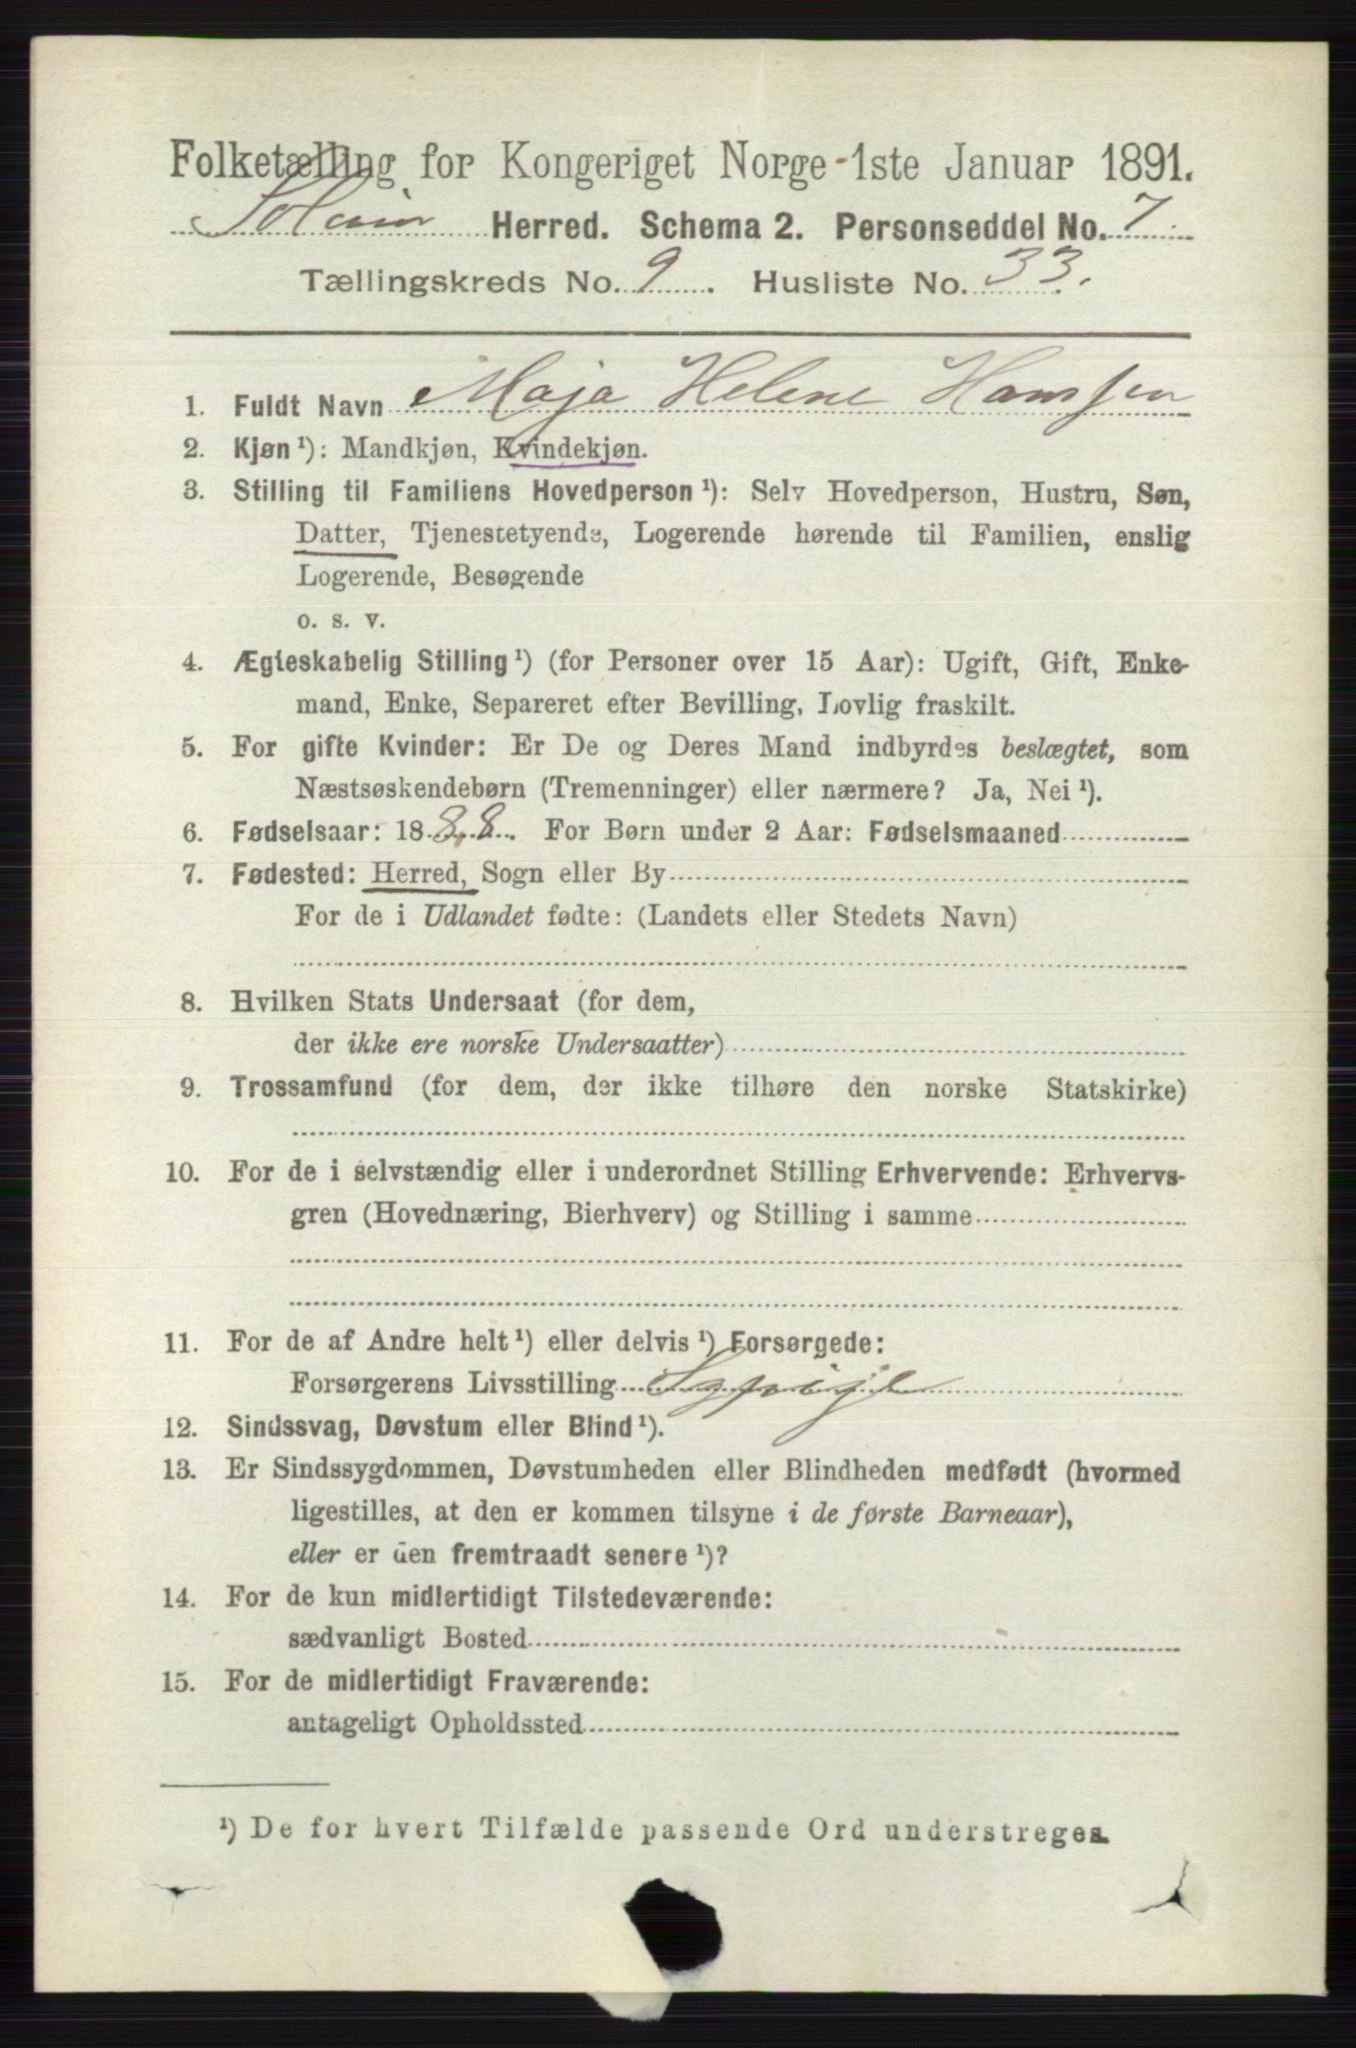 Folketælling for Kongeriget Norge 1ste Januar 1891.
Herred. Schema 2. Personseddel No. 7.
Tællingskreds No. 9. Husliste No. 33.
1. Fuldt Navn Maja Helene Hanssen
2. Kjøn ¹): Mandkjøn, Kvindekjøn.
3. Stilling til Familiens Hovedperson ¹): Selv Hovedperson, Hustru, Søn,
Datter, Tjenestetyende, Logerende hørende til Familien, enslig
Logerende, Besøgende
o. s. v.
4. Ægteskabelig Stilling ¹) (for Personer over 15 Aar): Ugift, Gift, Enke-
mand, Enke, Separeret efter Bevilling, Lovlig fraskilt.
5. For gifte Kvinder: Er De og Deres Mand indbyrdes beslægtet, som
Næstsøskendebørn (Tremenninger) eller nærmere? Ja, Nei ¹).
6. Fødselsaar: 1888. For Børn under 2 Aar: Fødselsmaaned
7. Fødested: Herred, Sogn eller By
For de i Udlandet fødte: (Landets eller Stedets Navn)
8. Hvilken Stats Undersaat (for dem,
der ikke ere norske Undersaatter)
9. Trossamfund (for dem, der ikke tilhøre den norske Statskirke)
10. For de i selvstændig eller i underordnet Stilling Erhvervende: Erhvervs-
gren (Hovednæring, Bierhverv) og Stilling i samme
11. For de af Andre helt ¹) eller delvis ¹) Forsørgede:
Forsørgerens Livsstilling
12. Sindssvag, Døvstum eller Blind ¹).
13. Er Sindssygdommen, Døvstumheden eller Blindheden medfødt (hvormed
ligestilles, at den er kommen tilsyne i de første Barneaar),
eller er den fremtraadt senere ¹)?
14. For de kun midlertidigt Tilstedeværende:
sædvanligt Bosted
15. For de midlertidigt Fraværende:
antageligt Opholdssted
¹) De for hvert Tilfælde passende Ord understreges.